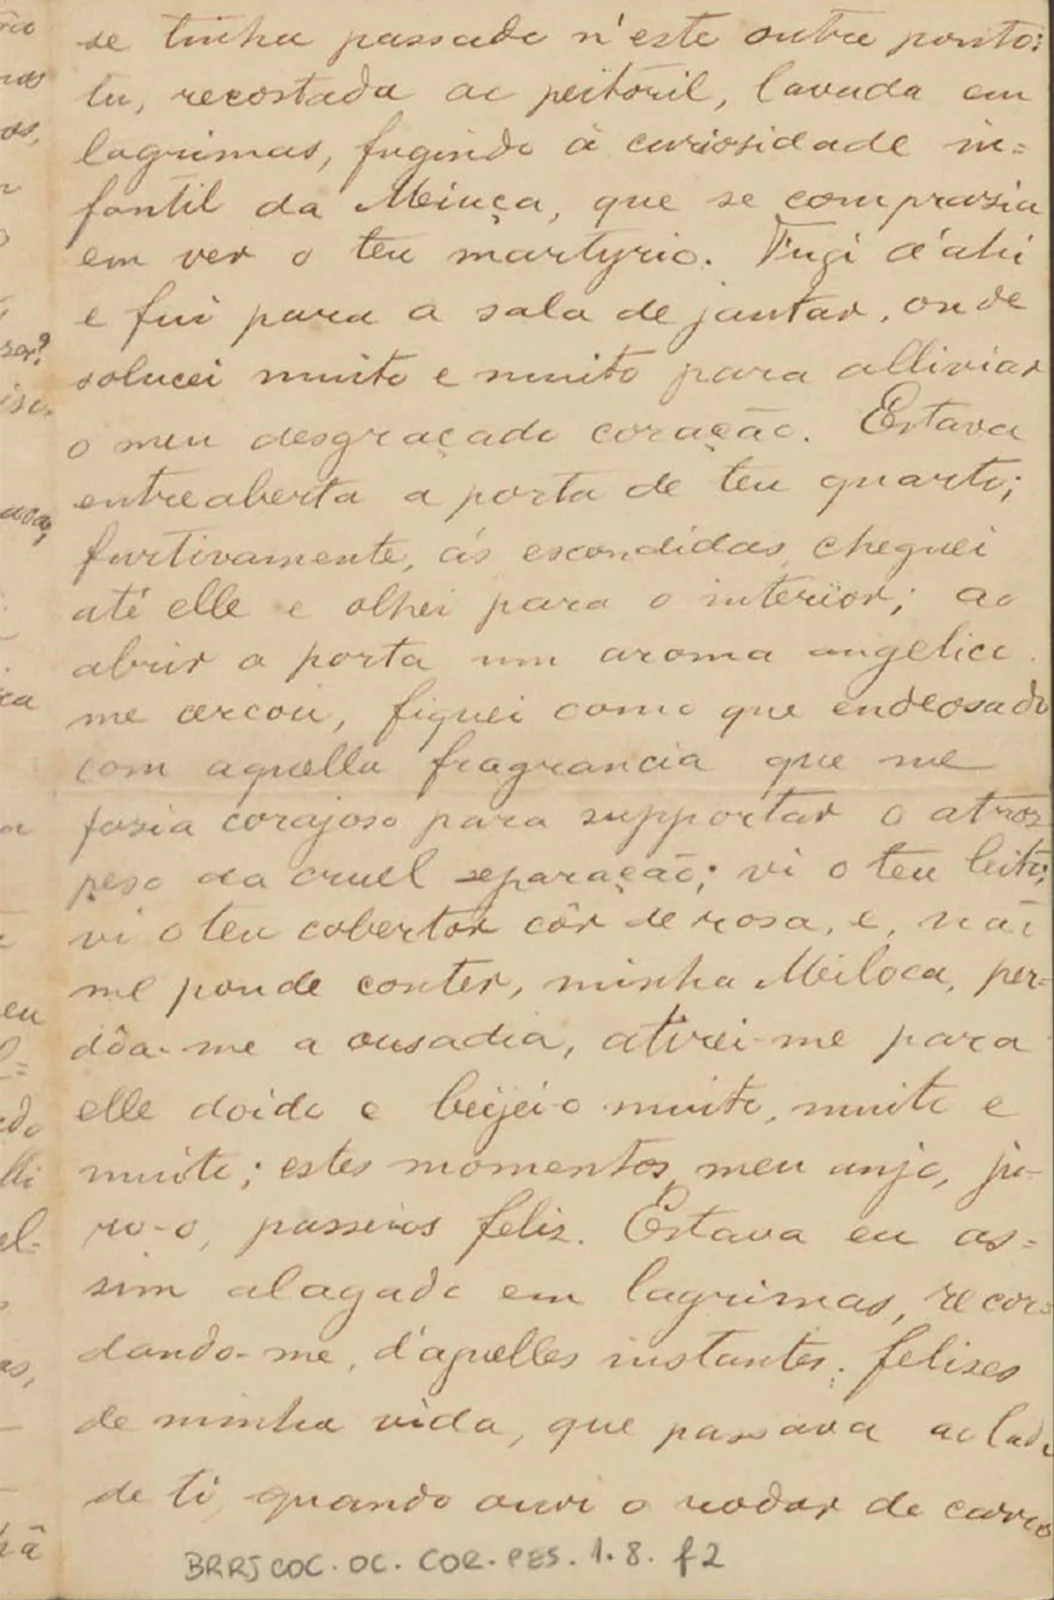 se tinha passado n'este outro ponto:
tu, recostada ao peitoril, lavada em
lagrimas, fugindo á curiosidade in=
fantil da Meiuça, que se comprasia
em ver o teu martyrio. Fugi d'ahi
e fui para a sala de jantar, onde
solucei muito e muito para alliviar
o meu desgraçado coração. Estava
entreaberta a porta de teu quarto;
furtivamente, ás escondidas, cheguei
até elle e olhei para o interior; ao
abrir a porta um aroma angelico
me cercou, fiquei como que endeosado
com aquella fragrancia que me
fasia corajoso para supportar o atros
peso da cruel separação; vi o teu leito,
vi o teu cobertor côr de rosa, e, não
me poude conter, minha Meiloca, per=
dôa-me a ousadia, atirei-me para
elle doido e beijei-o muito, muito e
muito; estes momentos, meu anjo, ju-
ro-o, passeios feliz. Estava eu as=
sim alagado em lagrimas, recor=
dando-me, d'aquelles instantes felises
de minha vida, que passava ao lado
de ti, quando ouvi o rodar de carro
BRRJCOC.OC.COR.PES.1.8.f2
rão
nos
os,
ser?
ica
eu
do
lli
el=
as,
hã